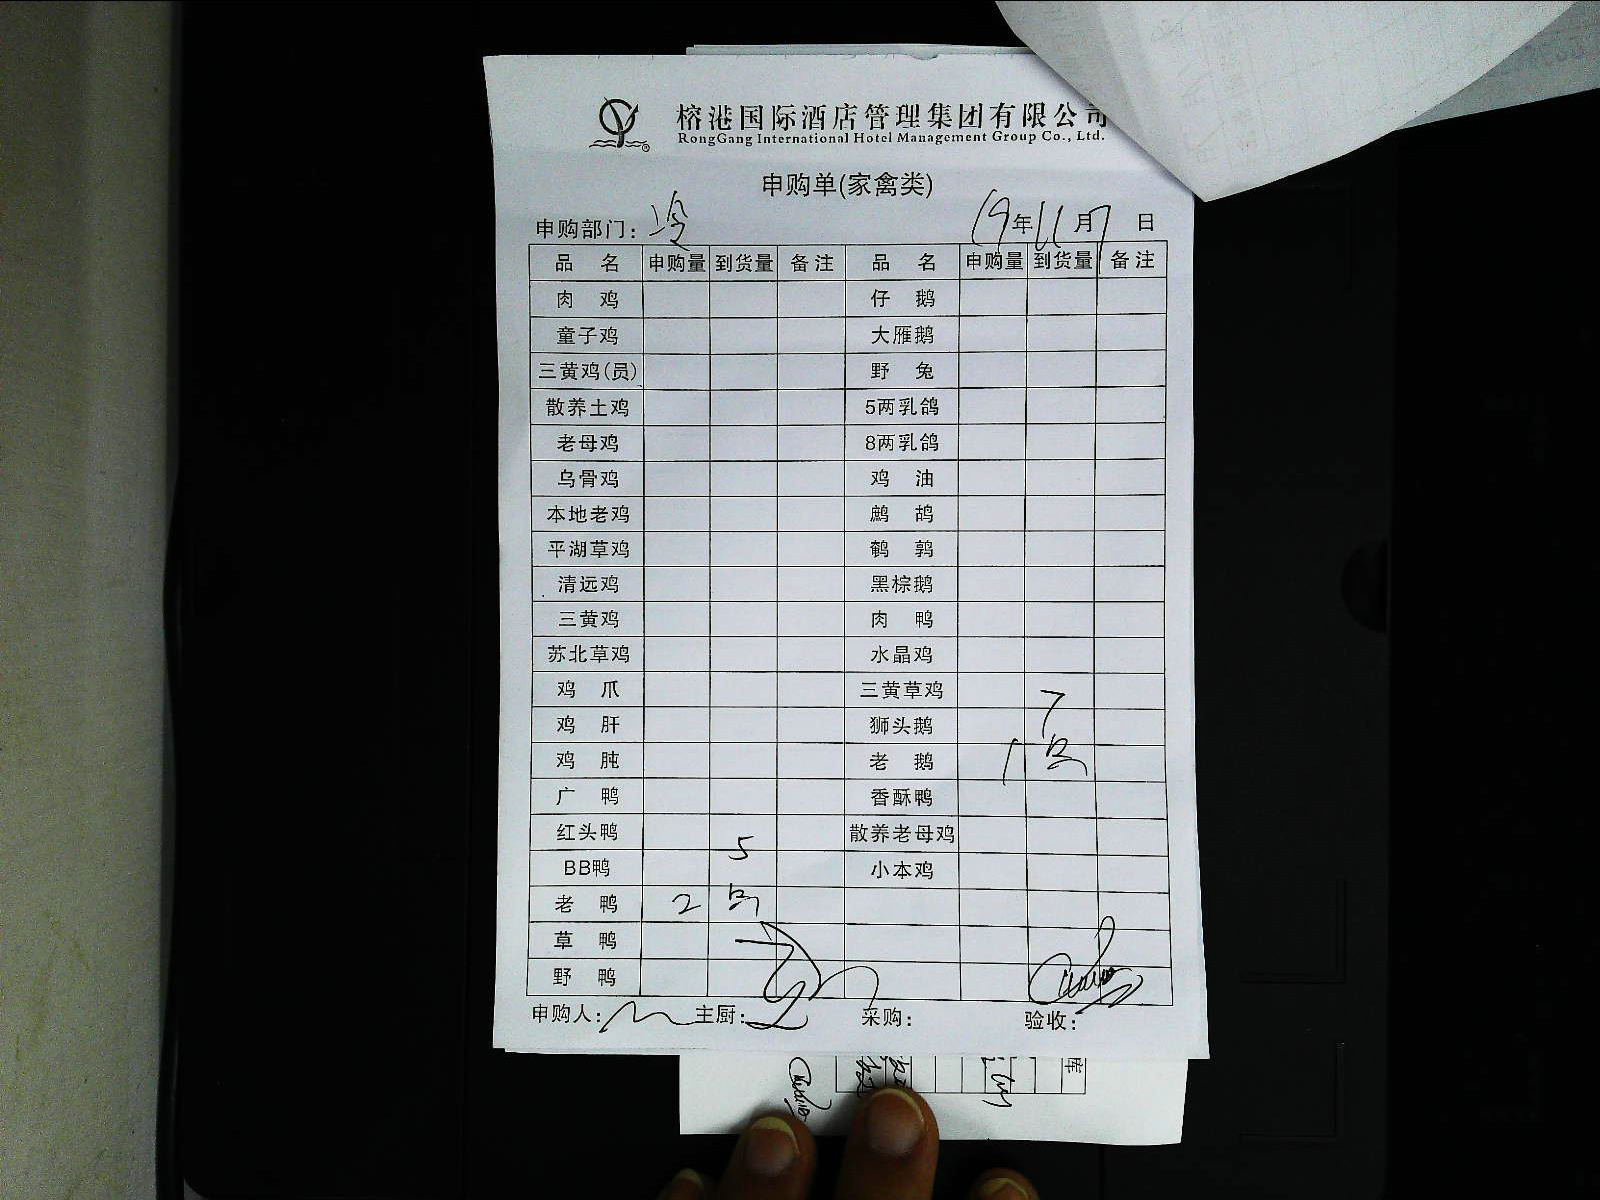 榕港国际酒店管理集团有限公司
RongGang International Hotel Management Group Co., Ltd.
申购单(家禽类)
申购部门：冷 19年11月7日
品名 申购量 到货量 备注 品名 申购量 到货量 备注
肉鸡 仔鹅
童子鸡 大雁鹅
三黄鸡(员) 野兔
散养土鸡 5两乳鸽
老母鸡 8两乳鸽
乌骨鸡 鸡油
本地老鸡 鹧鸪
平湖草鸡 鹌鹑
清远鸡 黑棕鹅
三黄鸡 肉鸭
苏北草鸡 水晶鸡
鸡爪 三黄草鸡
鸡肝 狮头鹅 7
鸡肫 老鹅 1
广鸭 香酥鸭
红头鸭 散养老母鸡
BB鸭 5 小本鸡
老鸭 2
草鸭
野鸭
申购人： 主厨： 采购： 验收：
库